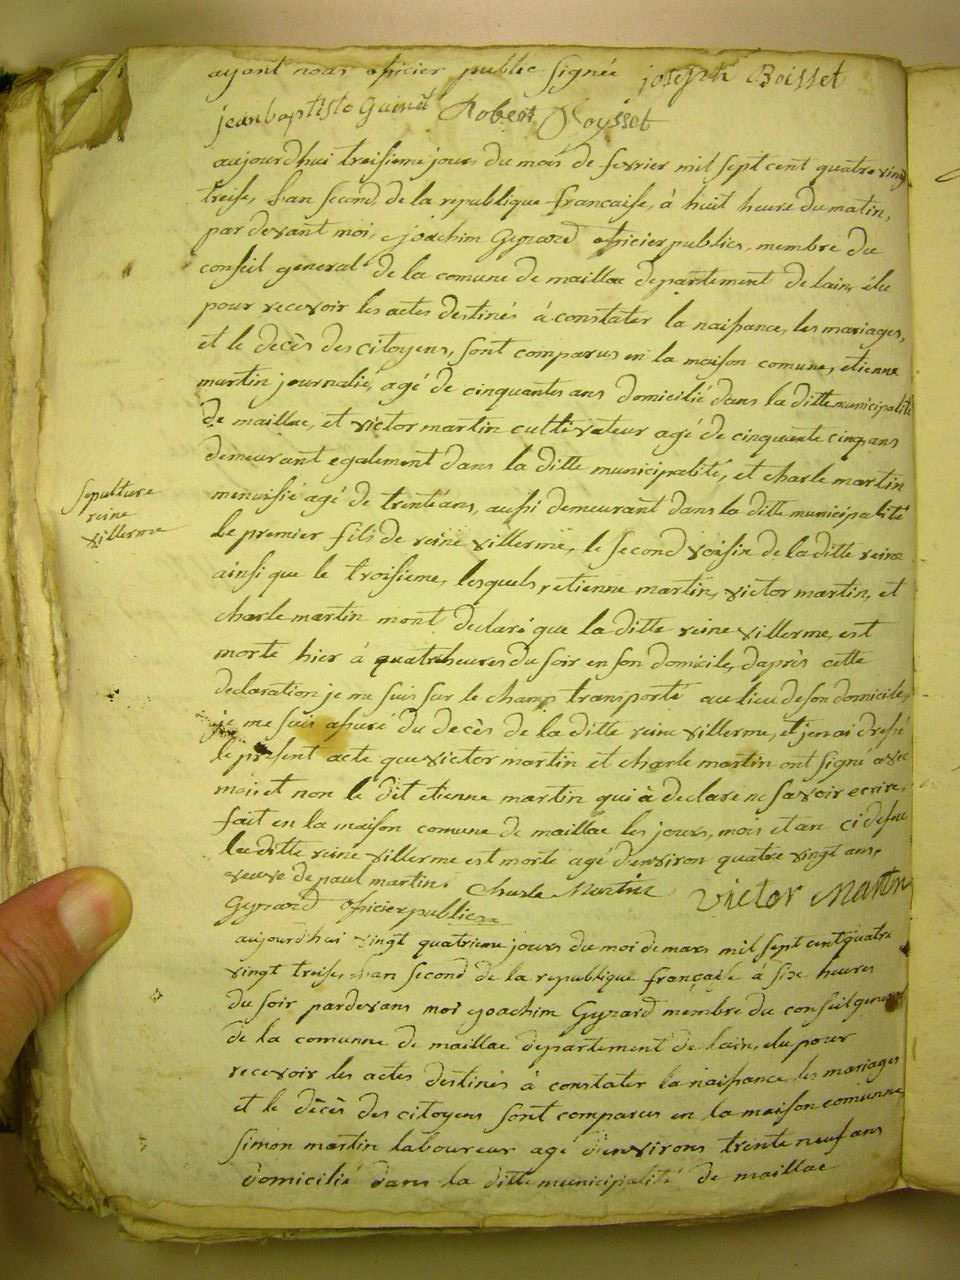 ayant nous oficier public signée joseph Boisset
jeanbaptiste Guinet Robert Noysset
aujourdhui treisieme jours du mois de fevrier mil sept cent quatre ving
treise, l'an second de la republique francaise, à huit heure du matin,
par devant moi, joachim Gyrard oficier publics, membre du
conseil general de la comune de maillac departement de lain, élu
pour recevoir les actes destinés à constater la naissance, les mariages,
et le decès des citoyens, sont comparus en la maison comune, etienne
martin journalié, agé de cinquantes ans domicilié dans la ditte municipalité
de maillac, et victor martin cultivateur agé de cinquente cinq ans
demeurant egalement dans la ditte municipalité, et charle martin
menuisié agé de trente ans, aussi demeurant dans la ditte municipalité
le premier fils de reine villerme, le second voisin de la ditte reine
ainsi que le troisieme, lesquels, etienne martin, victor martin, et
charle martin mont declaré que la ditte reine villerme, est
morte hier à quatre heures du soir en son domicile, daprès cette
declaration je me suis sur le champ transporté au lieu de son domicile,
je me suis assuré du decès de la ditte reine villerme, et jen ai dressé
le present acte que victor martin et charle martin ont signé avec
moi et non le dit etienne martin qui à declaré ne savoir ecrire,
fait en la maison comune de maillac les jours, mois et an ci desue
la ditte reine villerme est morte agé denviron quatre vingt ans,
veuve de paul martin. Charle Martin Victor Martin
Gyrard oficier publics
sepulture
reine
villerme
aujourdhui vingt quatrieme jours du moi de mars mil sept cent quatre
vingt treise, lan second de la republique française à six heures
du soir pardevans moi joachim Gyrard membre du conseil general
de la comunne de maillac departement de lain, elu pour
recevoir les actes destinés à constater la naissance les mariages
et le décès des citoyens sont comparus en la maison comunne
simon martin laboureur agé d'environs trente neuf ans
domicilié dans la ditte municipalité de maillac